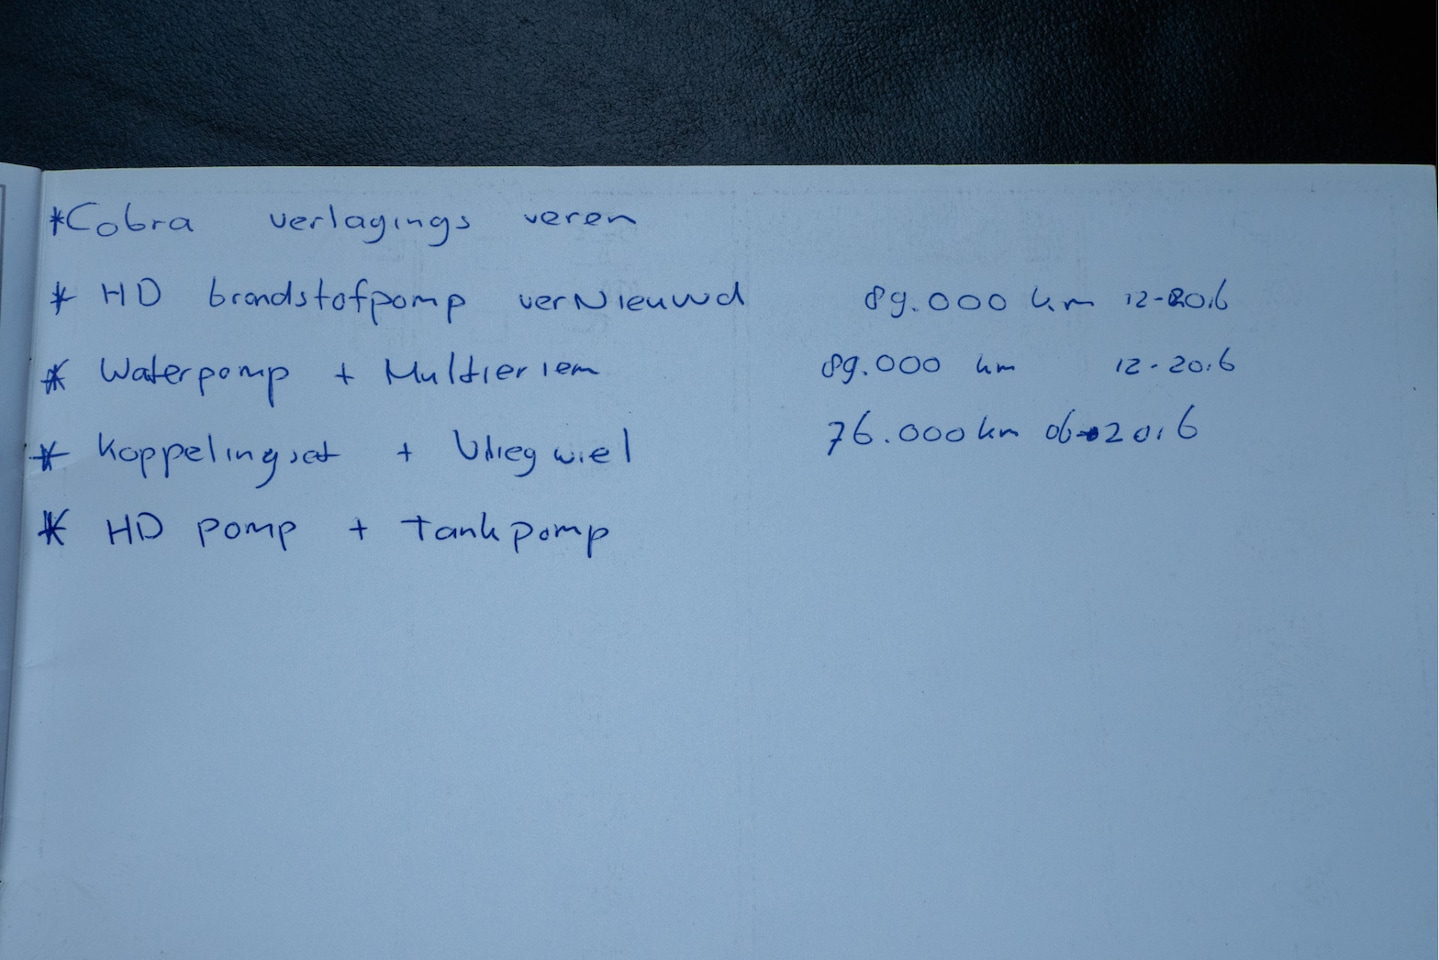 *Cobra verlagings veren
* HD brandstofpomp verNieuwd 89.000 km 12-2016
* Waterpomp + Multieriem 89.000 km 12-2016
* Koppelingset + Vliegwiel 76.000 km 06-2016
* HD pomp + Tankpomp